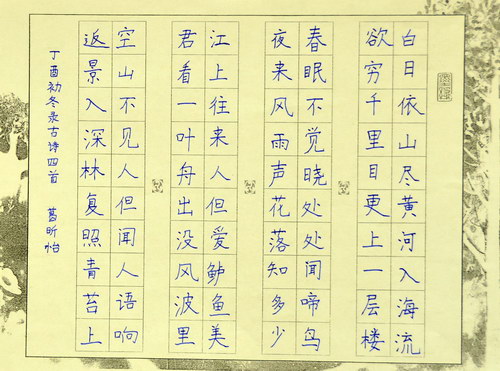 白日依山尽黄河入海流
欲穷千里目更上一层楼
春眠不觉晓处处闻啼鸟
夜来风雨声花落知多少
江上往来人但爱鲈鱼美
君看一叶舟出没风波里
空山不见人但闻人语响
返景入深林复照青苔上
丁酉初冬录古诗四首 葛昕怡